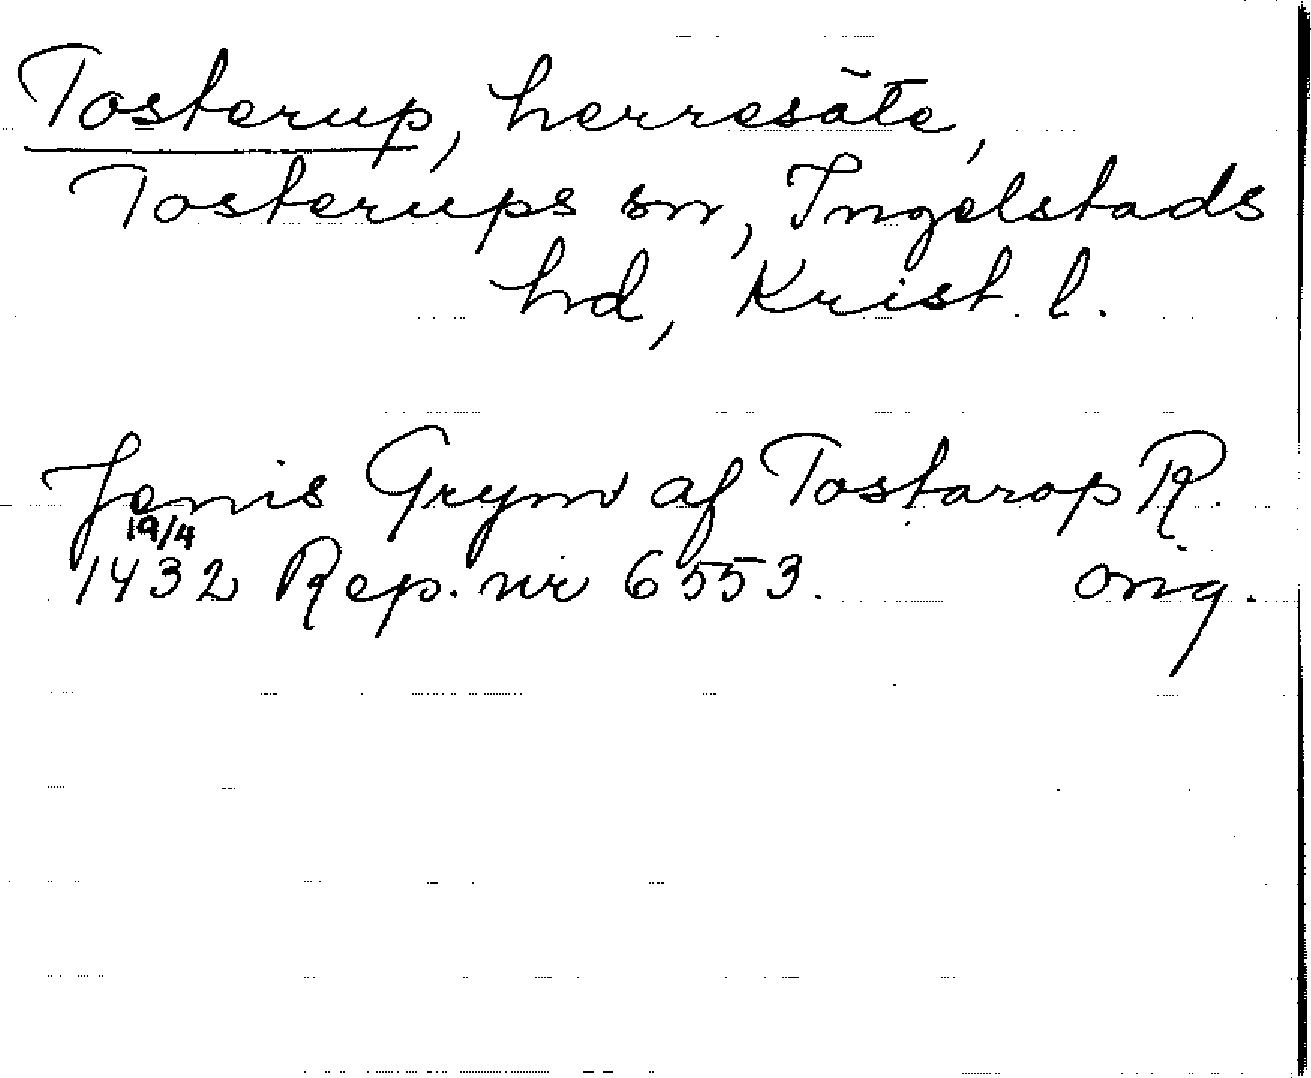 Tosterup, herresäte,
Tosterups sn, Ingelstads
hd, Krist. l.
Jenis Grym af Tostarop R.
19/4
1432 Rep. nr 6553. orig.